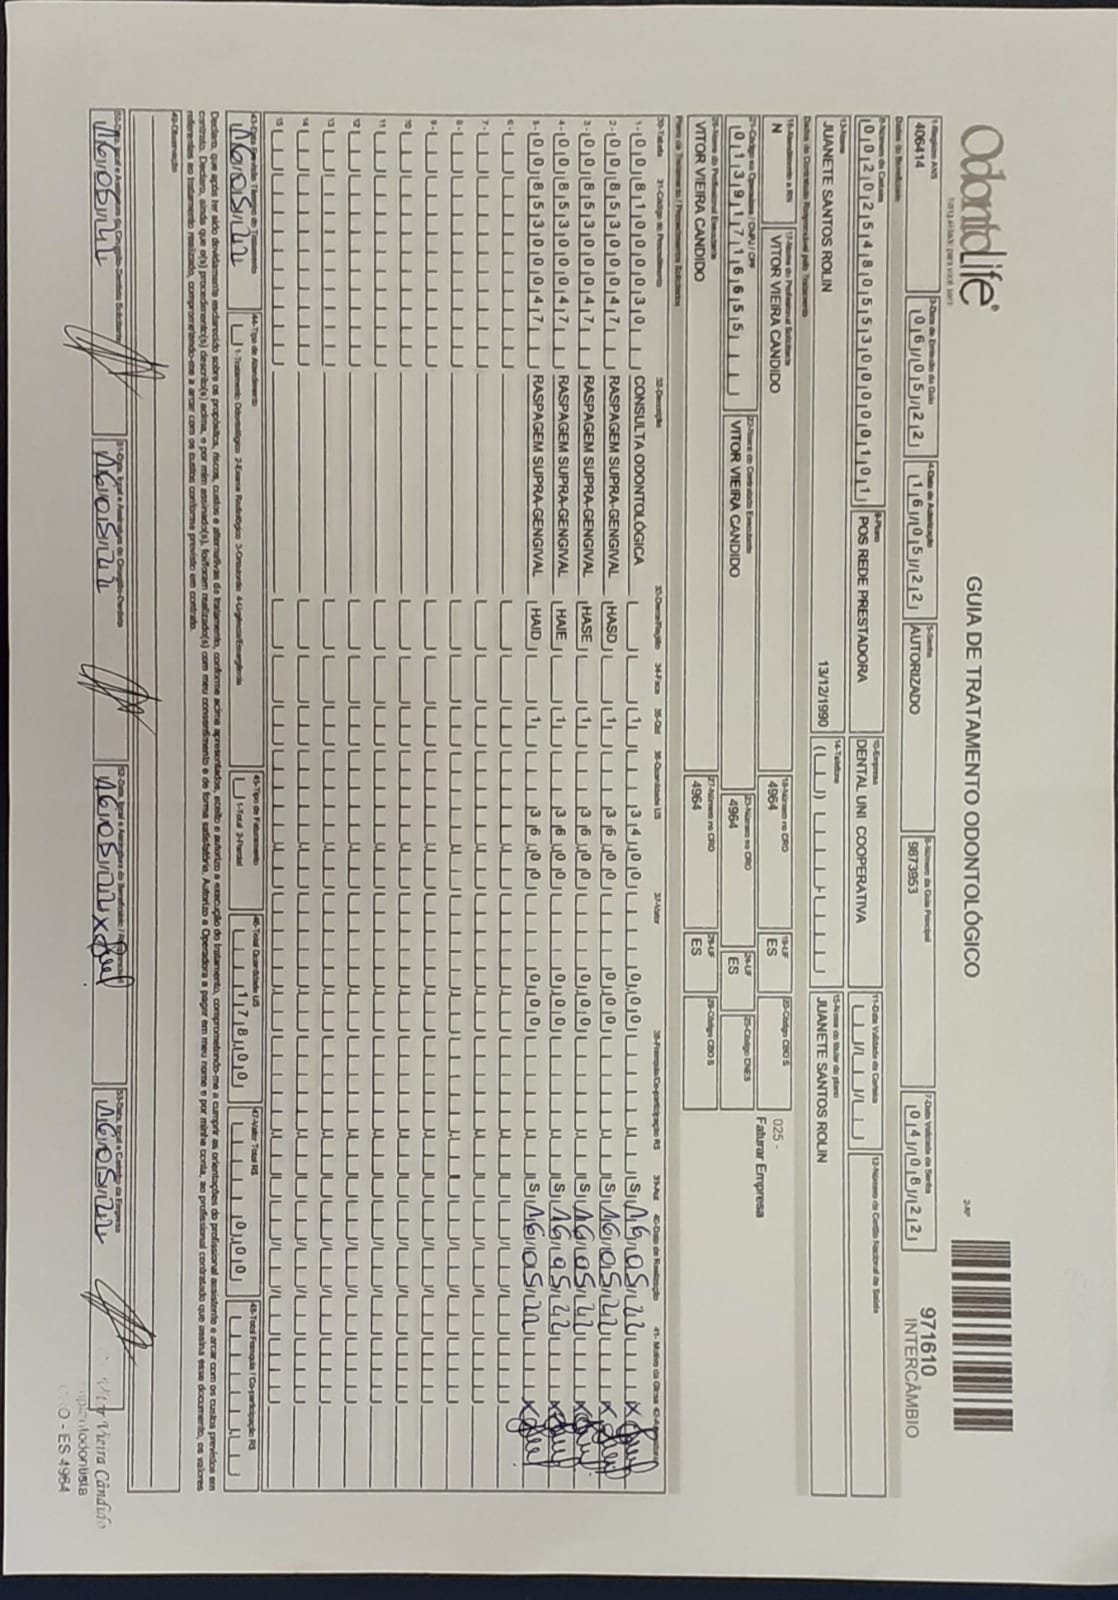 OdontoLife®
GUIA DE TRATAMENTO ODONTOLÓGICO
2-NP
971610
INTERCÂMBIO
1-Registro ANS
406414
3-Data de Emissão da Guia
06/05/22
4-Data de Autorização
16/05/22
5-Senha
AUTORIZADO
6-Número da Guia Principal
9873953
7-Data Validade da Senha
04/08/22
Dados do Beneficiário
8-Número da Carteira
00202548055300000101
9-Plano
POS REDE PRESTADORA
10-Empresa
DENTAL UNI COOPERATIVA
11-Data Validade da Carteira
12-Número do Cartão Nacional de Saúde
13-Nome
JUANETE SANTOS ROLIN
13/12/1990
14-Telefone
15-Nome do titular do plano
JUANETE SANTOS ROLIN
Dados do Contratado Responsável pelo Tratamento
16-Atendimento a RN
N
17-Nome do Profissional Solicitante
VITOR VIEIRA CANDIDO
18-Número no CRO
4964
19-UF
ES
20-Código CBO S
025 -
Faturar Empresa
21-Código na Operadora / CNPJ / CPF
01391716655
22-Nome do Contratado Executante
VITOR VIEIRA CANDIDO
23-Número no CRO
4964
24-UF
ES
25-Código CNES
26-Nome do Profissional Executante
VITOR VIEIRA CANDIDO
27-Número no CRO
4964
28-UF
ES
29-Código CBO S
Plano de Tratamento / Procedimentos Solicitados
30-Tabela 31-Código do Procedimento 32-Descrição 33-Dente/Região 34-Face 35-Qtd 36-Quantidade US 37-Valor 38-Franquia/Co-participação R$ 39-Aut 40-Data de Realização 41-Motivo da Glosa 42-Assinatura
1- 00 81000030 CONSULTA ODONTOLÓGICA 1 34,00 0,00 S 16/05/22 x
2- 00 85300047 RASPAGEM SUPRA-GENGIVAL HASD 1 36,00 0,00 S 16/05/22 x
3- 00 85300047 RASPAGEM SUPRA-GENGIVAL HASE 1 36,00 0,00 S 16/05/22 x
4- 00 85300047 RASPAGEM SUPRA-GENGIVAL HAIE 1 36,00 0,00 S 16/05/22 x
5- 00 85300047 RASPAGEM SUPRA-GENGIVAL HAID 1 36,00 0,00 S 16/05/22 x
6-
7-
8-
9-
10
11
12
13
14
15
16/05/22
44-Tipo de Atendimento
1-Tratamento Odontológico 2-Exame Radiológico 3-Ortodontia 4-Urgência/Emergência
45-Tipo de Faturamento
1-Total 2-Parcial
46-Total Quantidade US
178,00
47-Valor Total R$
0,00
48-Total Franquia / Co-participação R$
Declaro, que após ter sido devidamente esclarecido sobre os propósitos, riscos, custos e alternativas de tratamento, conforme acima apresentados, aceito e autorizo a execução do tratamento, comprometendo-me a cumprir as orientações do profissional assistente e arcar com os custos previstos em
contrato. Declaro, ainda que o(s) procedimento(s) descrito(s) acima, e por mim assinado(s), foi/foram realizado(s) com meu consentimento e de forma satisfatória. Autorizo a Operadora a pagar em meu nome e por minha conta, ao profissional contratado que assina esse documento, os valores
referentes ao tratamento realizado, comprometendo-me a arcar com os custos conforme previsto em contrato.
49-Observação
50-Data, local e Assinatura do Cirurgião-Dentista Solicitante
16/05/22
51-Data, local e Assinatura do Cirurgião-Dentista
16/05/22
16/05/22 x
53-Data, local e Carimbo da Empresa
16/05/22
Vitor Vieira Cândido
O - ES 4964